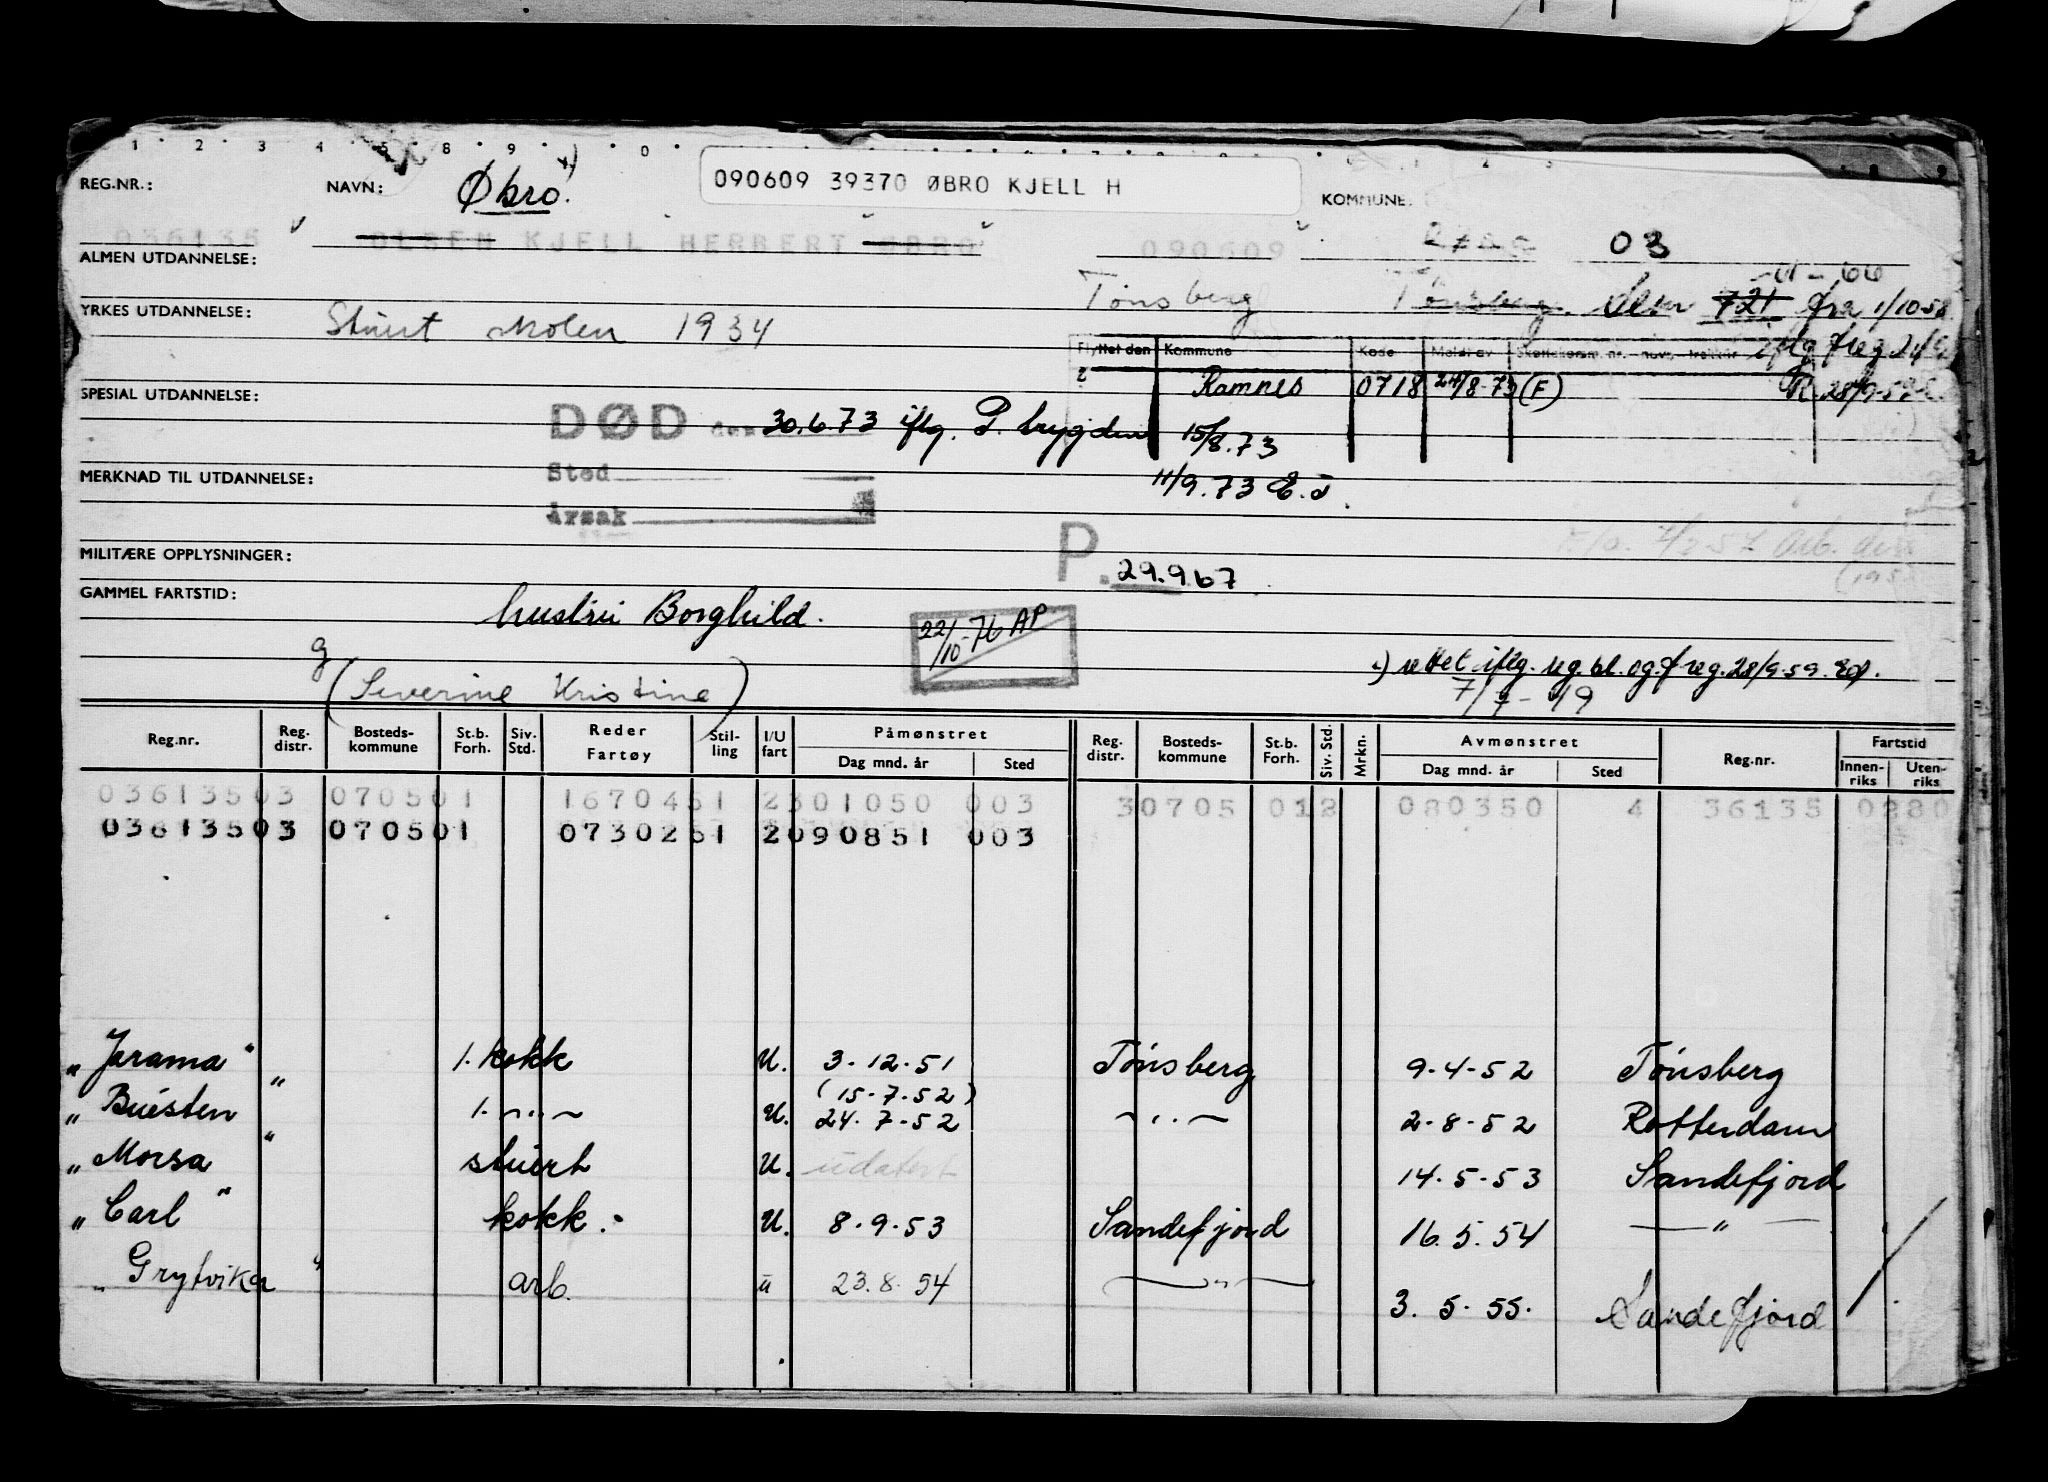 REG.NR.: NAVN: Øbro. 090609 39370 ØBRO KJELL H KOMMUNE:
036135 OLSEN KJELL HERBERT ØBRO 090609 03
ALMEN UTDANNELSE:
Tønsberg Tønsberg. Sem 721 fra 1/10-58
YRKES UTDANNELSE: Stuert skolen 1934
Flyttet den Kommune Kode Meldt av
Ramnes 0718 24/8-73 (F)
SPESIAL UTDANNELSE:
DØD den 30.6.73 iflg. P. trygden 15/8.73
MERKNAD TIL UTDANNELSE: Sted 11/9.73
Årsak
MILITÆRE OPPLYSNINGER: P. 29.9.67
GAMMEL FARTSTID:
hustru Borghild. 22/10-76 AP
g (Severine Kristine) rettet iflg. reg. bl. og f.reg. 28/9-59.
Reg.nr. Reg. distr. Bosteds-kommune St.b. Forh. Siv. Std. Reder Fartøy Stil-ling I/U fart Påmønstret Dag mnd. år Sted Reg. distr. Bosteds-kommune St.b. Forh. Siv. Std. Mrkn. Avmønstret Dag mnd. år Sted Reg.nr. Fartstid Innen-riks Uten-riks
03613503 070501 1670451 2301050 003 30705 012 080350 4 36135 0280
03613503 070501 0730251 2090851 003
"Jarama" 1. kokk U. 3-12-51 Tønsberg 9-4-52 Tønsberg
(15-7-52)
"Buesten" 1. -"- U. 24-7-52 -"- 2-8-52 Rotterdam
"Morsa" stuert U. udatert 14-5-53 Sandefjord
"Carl" kokk. U. 8-9-53 Sandefjord 16.5.54 -"-
"Grytviken" arb. u 23.8.54 -"- 3.5.55. Sandefjord